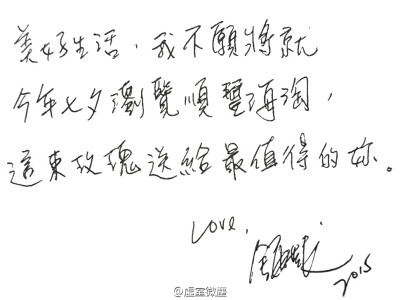 美好生活，我不願將就
今年七夕瀏覽順豐海淘，
這束玫瑰送給最值得的妳。
Love,
2015
@虚室微塵